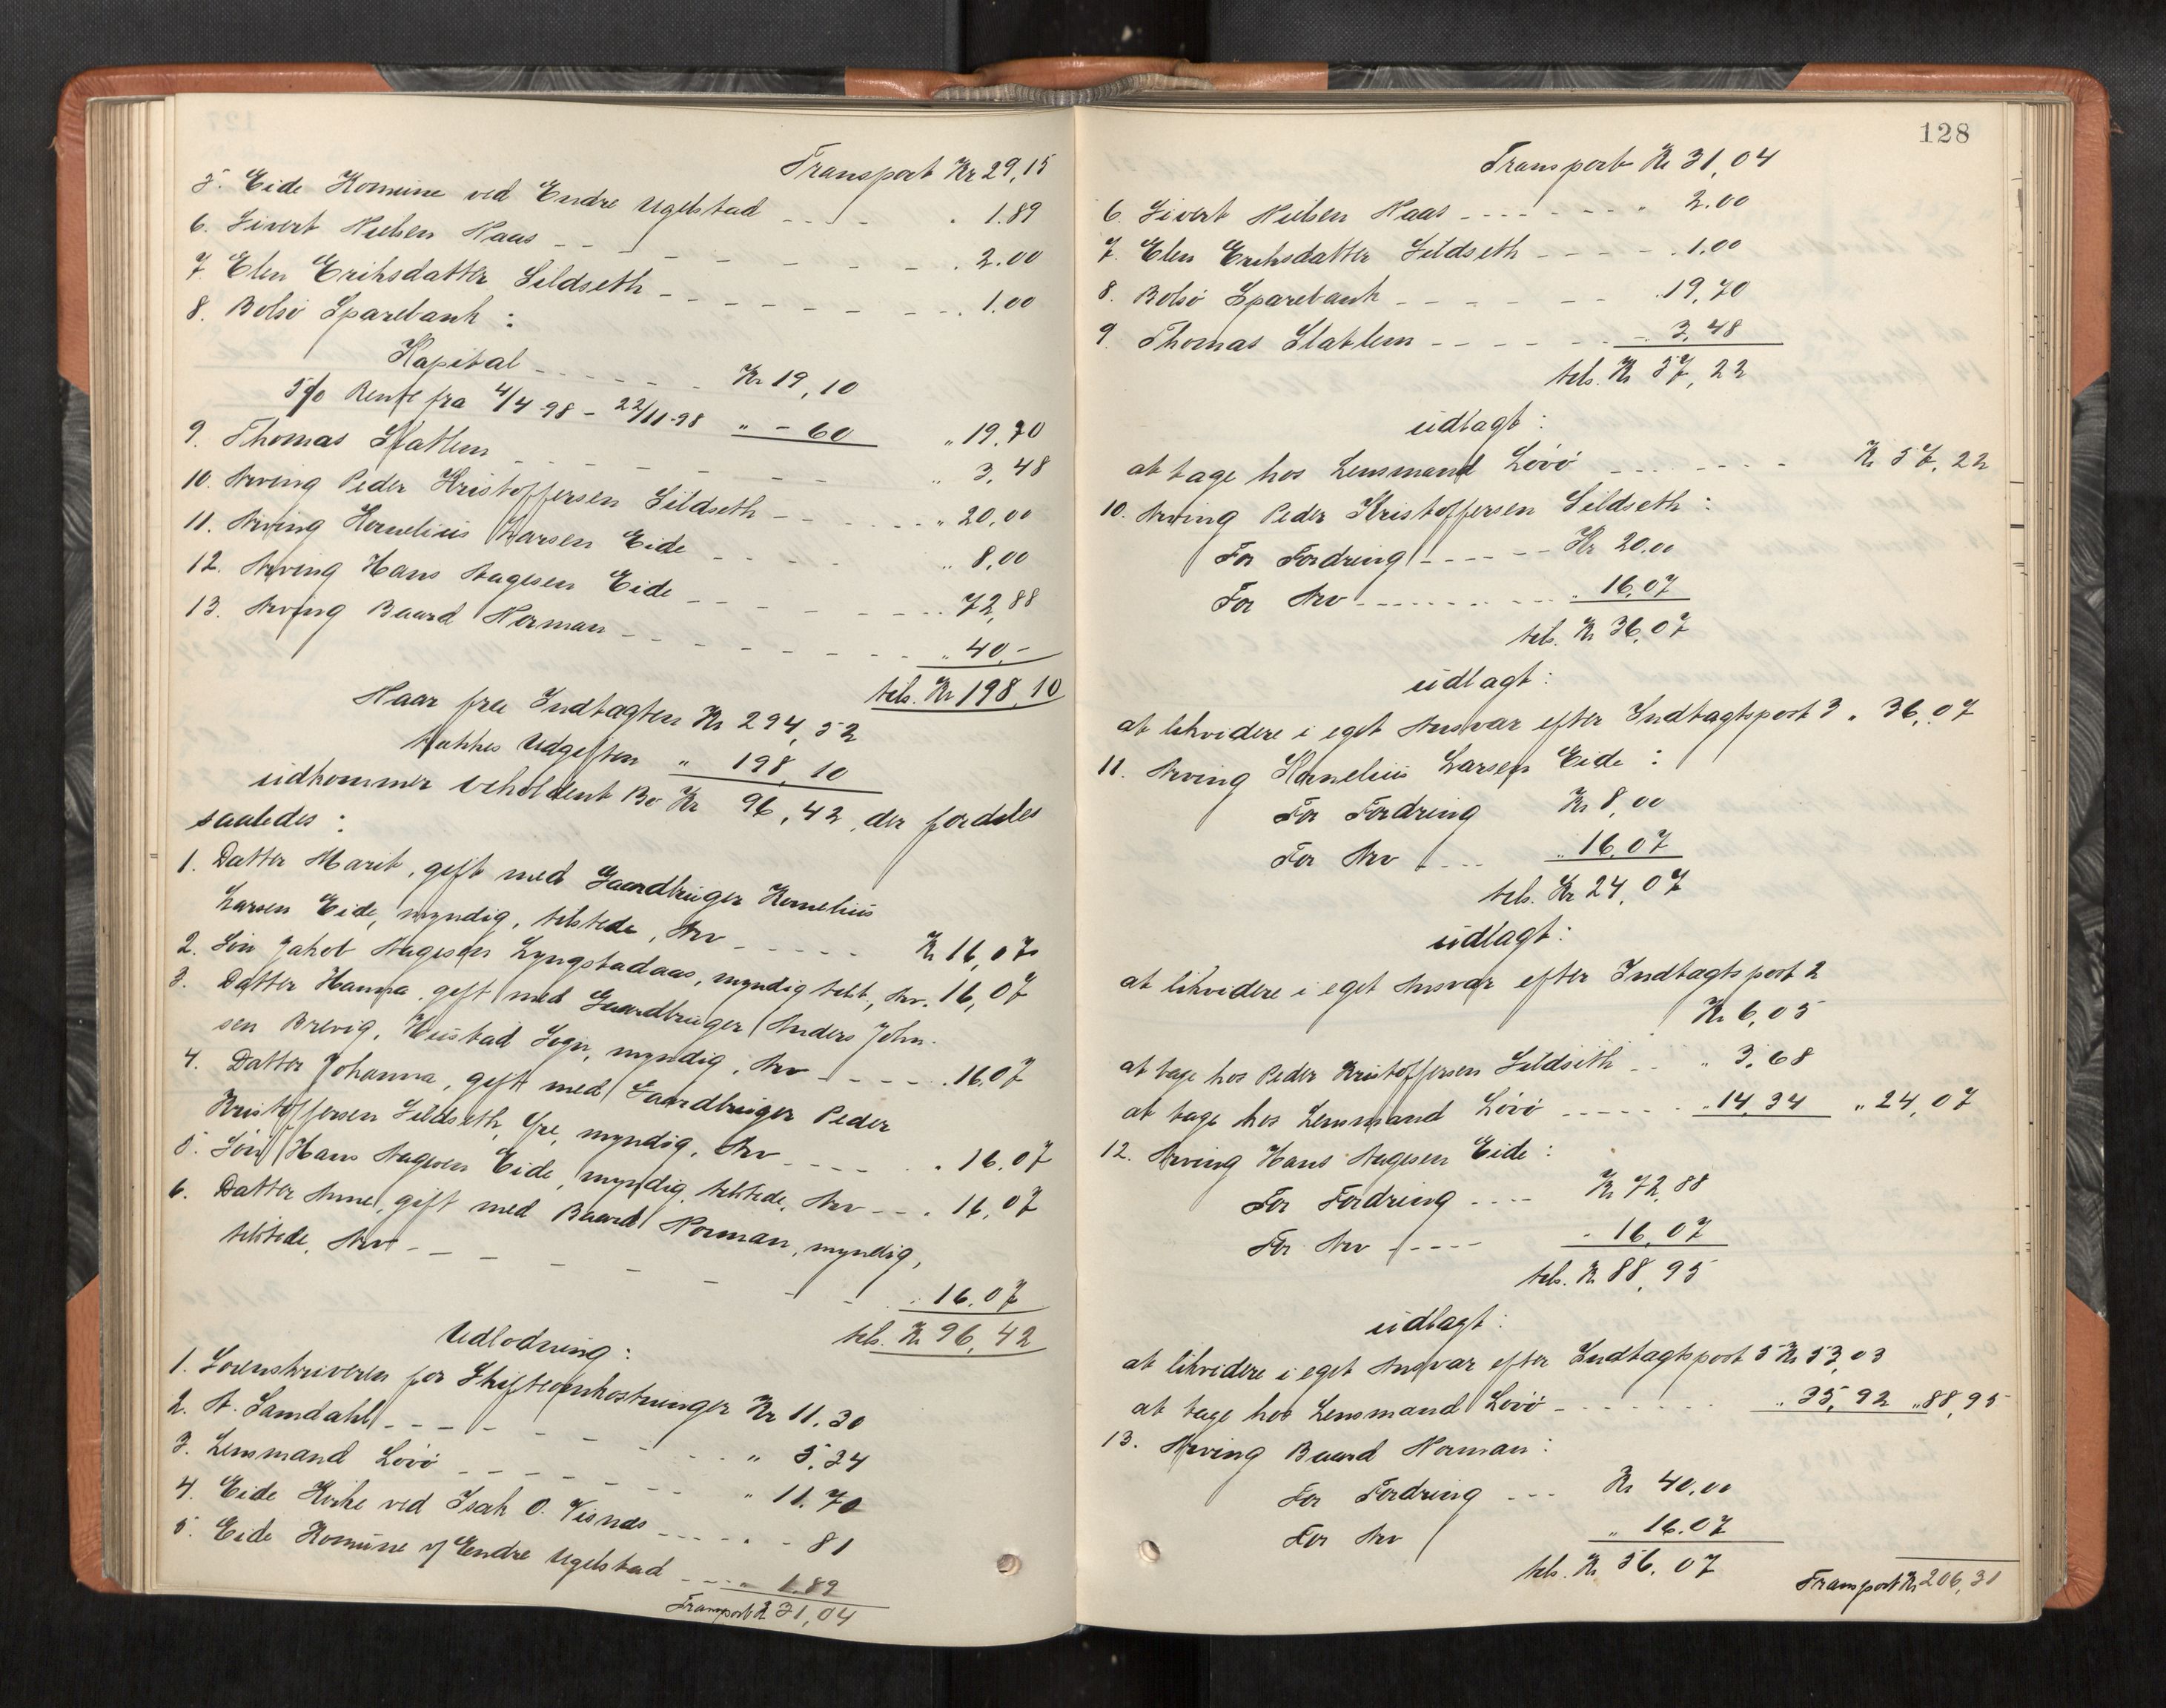 Transport Kr 29,15
5. Eide Komune ved Endre Ugelstad - - - - " 1.89
6. Sivert Nielsen Naas - - - - - - - " 2.00
7. Elen Eriksdatter Sildseth - - - - - - - " 1.00
8. Bolsö Sparebank :
Kapital - - - - - - Kr 19,10
5% Rente fra 4/4-98 - 22/11-98 " - 60 " 19,70
9. Thomas Slatlem - - - - - - - " 3,48
10. Arving Peder Kristoffersen Sildseth - - - - - " 20,00
11. Arving Kornelius Larsen Eide - - - - " 8,00
12. Arving Hans Aagesen Eide - - - - - - - 72,88
13. Arving Baard Norman - - - - - - - " 40,-
tils. Kr 198,10
Naar fra Indtægten Kr 294,52
trækkes Udgiften " 198,10
udkommer beholdent Bo Kr 96,42, der fordeles
saaledes :
1. Datter Marit, gift med Gaardbruger Kornelius
Larsen Eide, myndig, tilstede, Arv - - - - Kr 16,07
2. Søn Jakob Aagesen Lyngstadaas, myndig, tilst., Arv. 16,07
3. Datter Hanna, gift med Gaardbruger Anders John-
sen Brevig, Hustad Sogn, myndig, Arv - - - - " 16,07
4. Datter Johanna, gift med Gaardbruger Peder
Kristoffersen Sildseth, Gre, myndig, Arv - - - - " 16,07
5. Søn Hans Aagesen Eide, myndig, tilstede, Arv - - - " 16,07
6. Datter Anne, gift med Baard Norman, myndig,
tilstede, Arv - - - - - - - " 16,07
tils. Kr 96,42
Udlodning :
1. Sorenskriveren for Skifteomkostninger Kr 11.30
2. A. Samdahl - - - - - - - " 5,34
3. Lensmand Lövö - - - - - - " 11.70
4. Eide Kirke ved Isak O. Visnes - - - - - " - 81
5. Eide Komune v/ Endre Ugelstad - - - " 1.89
Transport Kr 31,04
128
Transport Kr 31,04
6. Sivert Nielsen Naas - - - - - - - " 2.00
7. Elen Eriksdatter Sildseth - - - - " 1,00
8. Bolsö Sparebank - - - - - - " 19,70
9. Thomas Slatlem - - - - - - - " 3,48
tils. Kr 57,22
udlagt :
at tage hos Lensmand Lövö - - - - - - Kr 57,22
10. Arving Peder Kristoffersen Sildseth :
For Fordring - - - - - Kr 20,00
For Arv - - - - - - - " 16,07
tils. Kr 36,07
udlagt :
at likvidere i eget Ansvar efter Indtægtspost 3 " 36,07
11. Arving Kornelius Larsen Eide :
For Fordring Kr 8,00
For Arv - - - " 16,07
tils. Kr 24,07
udlagt :
at likvidere i eget Ansvar efter Indtægtspost 2
Kr 6,05
at tage hos Peder Kristoffersen Sildseth - - " 3,68
at tage hos Lensmand Lövö - - - - - - " 14,34 " 24,07
12. Arving Hans Aagesen Eide :
For Fordring - - - - Kr 72,88
For Arv - - - - - " 16,07
tils. Kr 88,95
udlagt :
at likvidere i eget Ansvar efter Indtægtspost 5 Kr 53,03
at tage hos Lensmand Lövö - - - - - - - " 35,92 " 88,95
13. Arving Baard Norman :
For Fordring - - - Kr 40,00
For Arv " 16,07
tils. Kr 56,07
Transport Kr 206,31